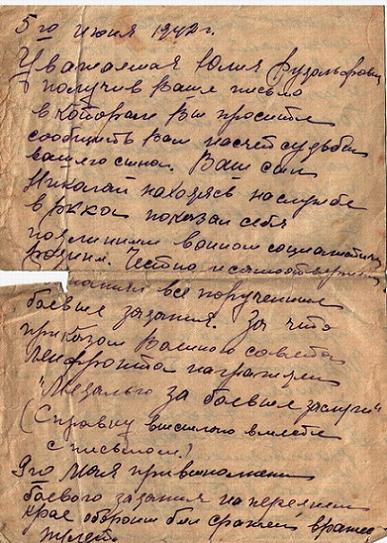 5го июня 1942 г.
Уважаемая Юлия Рудольфовна
получив Ваше письмо
в котором Вы просите
сообщить Вам насчет судьбы
вашего сына. Ваш сын
Николай находясь на службе
в РККА показал себя
подлинным воином социалистич
родины. Честно и самоотверженно
все порученные
боевые задания. За что
приказом Военного совета
Ленфронта награжден
"Медалью за боевые заслуги"
(Справку высылаю вместе
с письмом.)
9го мая при выполнении
боевого задания на переднем
крае обороны был сражен вражес
пулей.